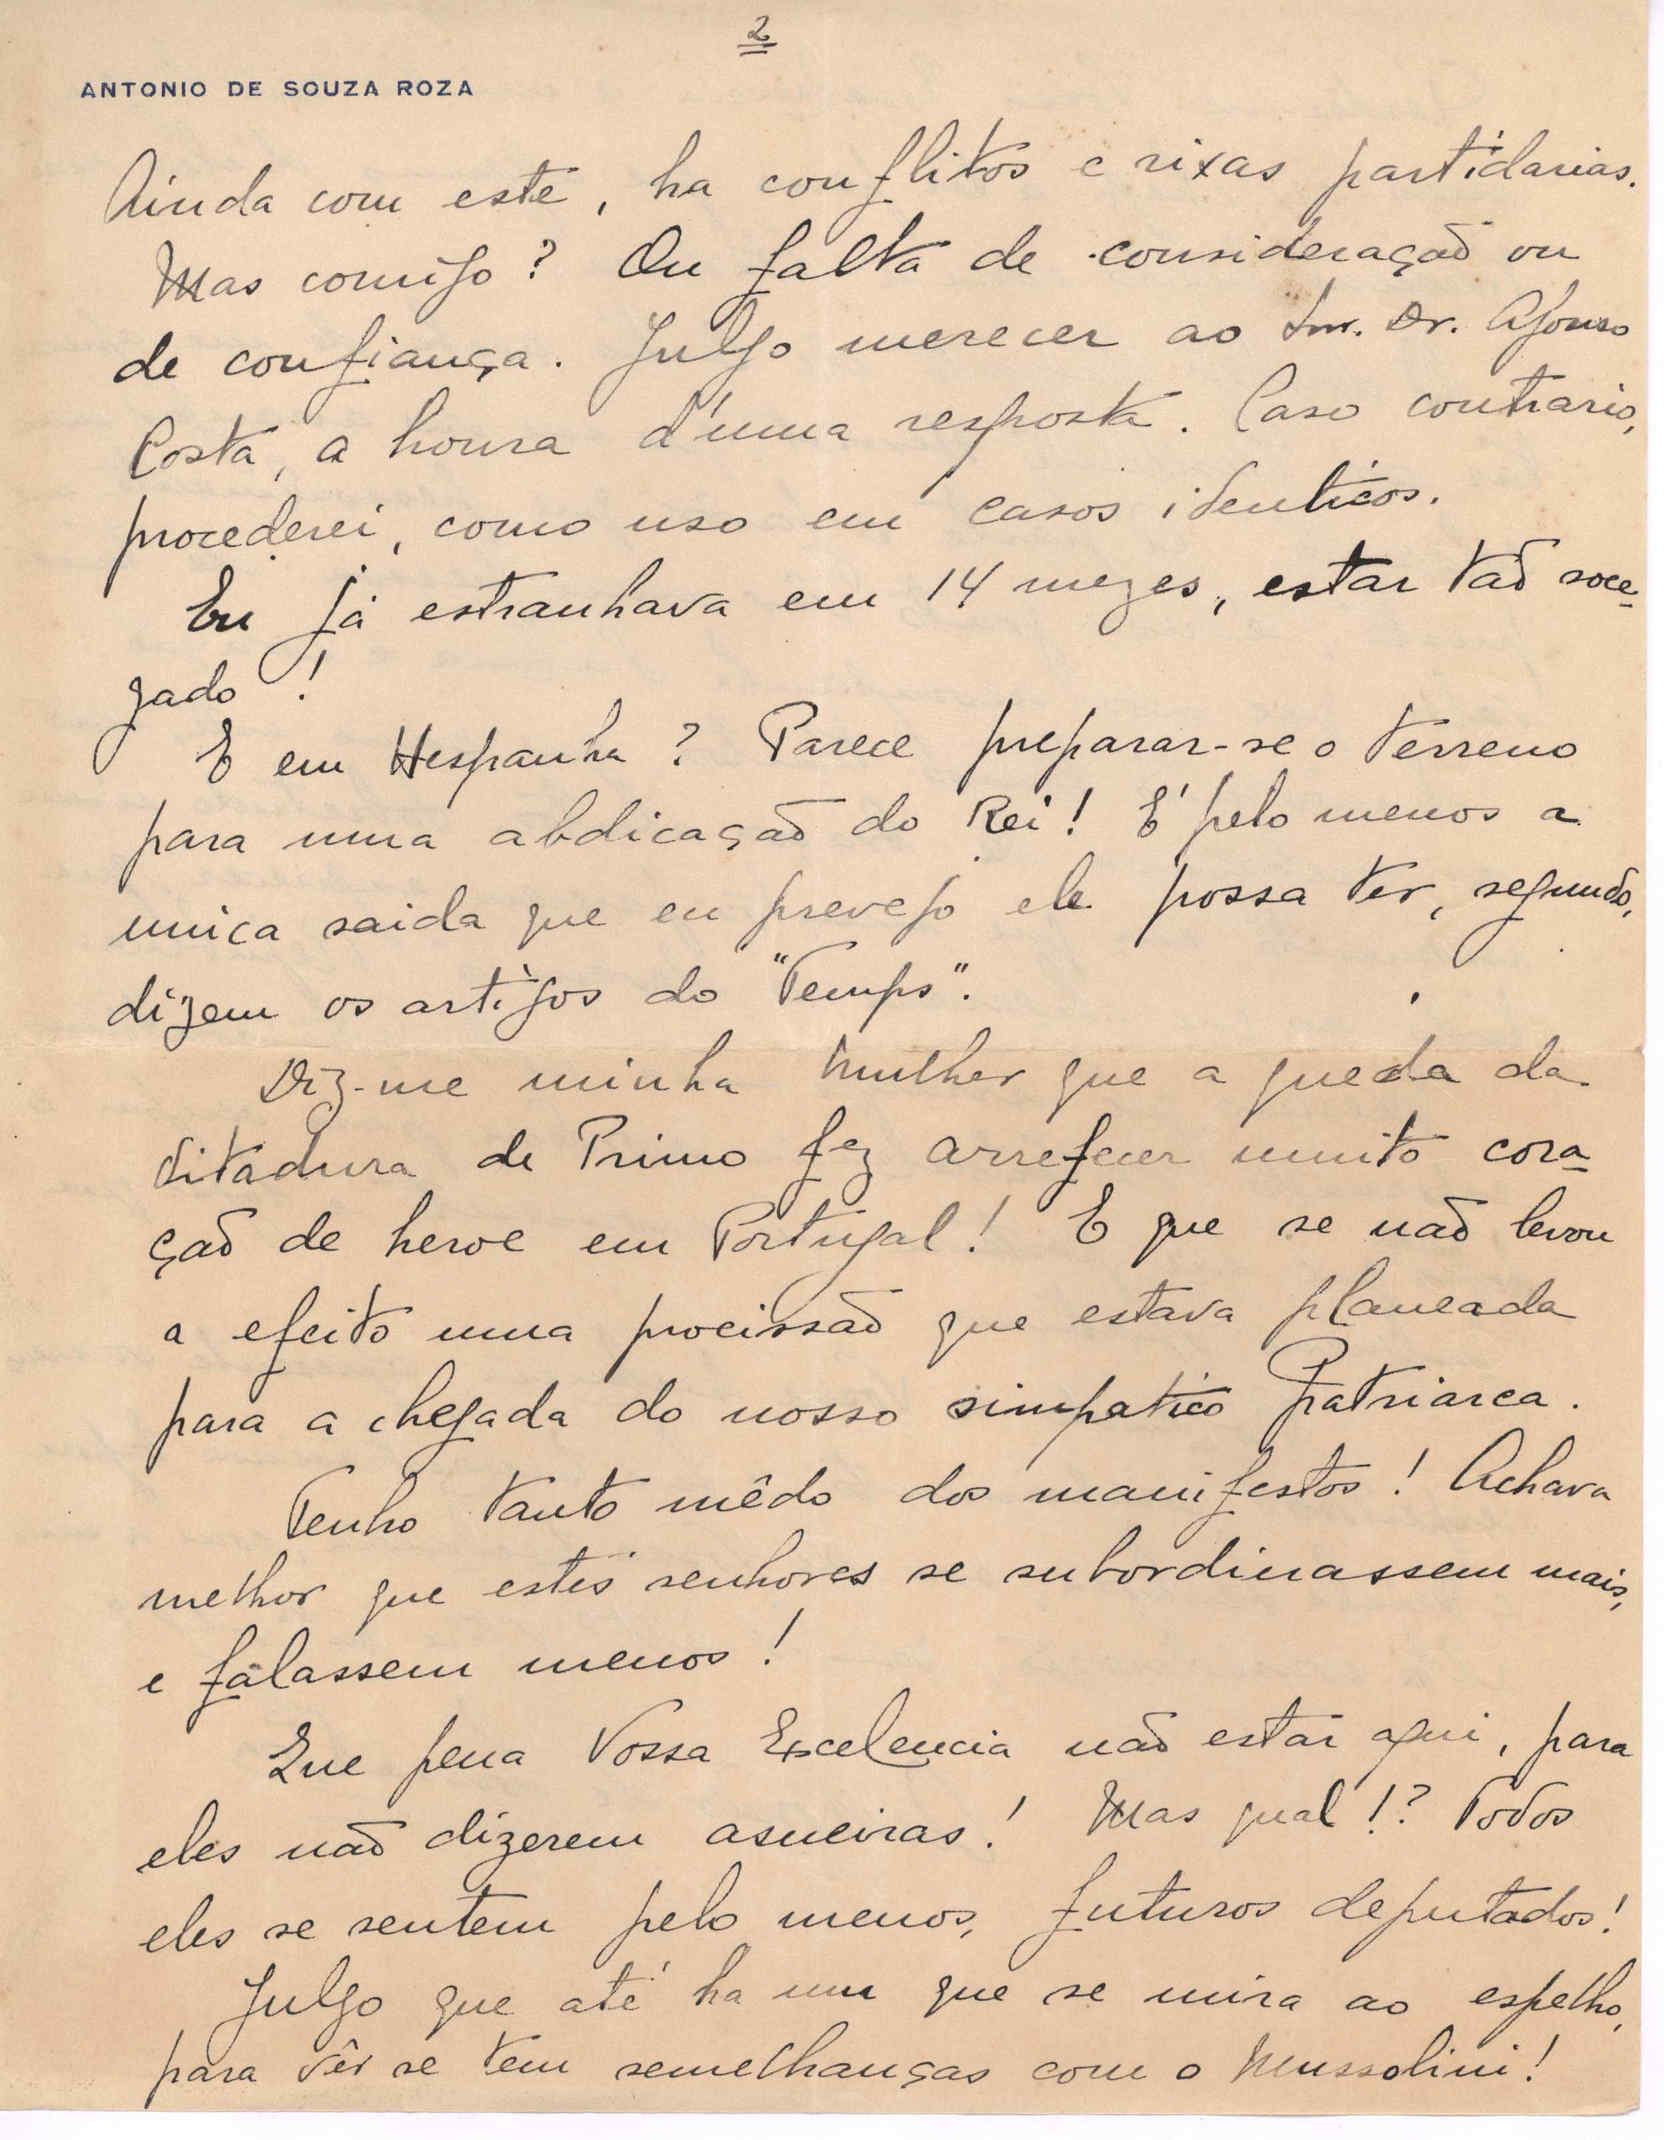 2
ANTONIO DE SOUZA ROZA
Ainda com este, ha conflitos e rixas partidarias.
Mas comigo? Ou falta de consideração ou
de confiança. Julgo merecer ao Snr. Dr. Afonso
Costa, a honra d'uma resposta. Caso contrario,
procederei, como uso em casos identicos.
Eu já estranhava em 14 mezes, estar tão soce-
gado!
E em Hespanha? Parece preparar-se o terreno
para uma abdicação do Rei! E' pelo menos a
unica saida que eu prevejo ele possa ter, segundo,
dizem os artigos do "Temps".
Diz-me minha mulher que a queda da
ditadura de Primo fez arrefecer muito cora-
ção de heroe em Portugal! E que se não levou
a efeito uma procissão que estava planeada
para a chegada do nosso simpatico Patriarca.
Tenho tanto mêdo dos manifestos! Achava
melhor que estes senhores se subordinassem mais,
e falassem menos!
Que pena Vossa Excelencia não estar aqui, para
eles não dizerem asneiras! Mas qual!? Todos
eles se sentem pelo menos, futuros deputados!
Julgo que até ha um que se mira ao espelho,
para vêr se tem semelhanças com o Mussolini!